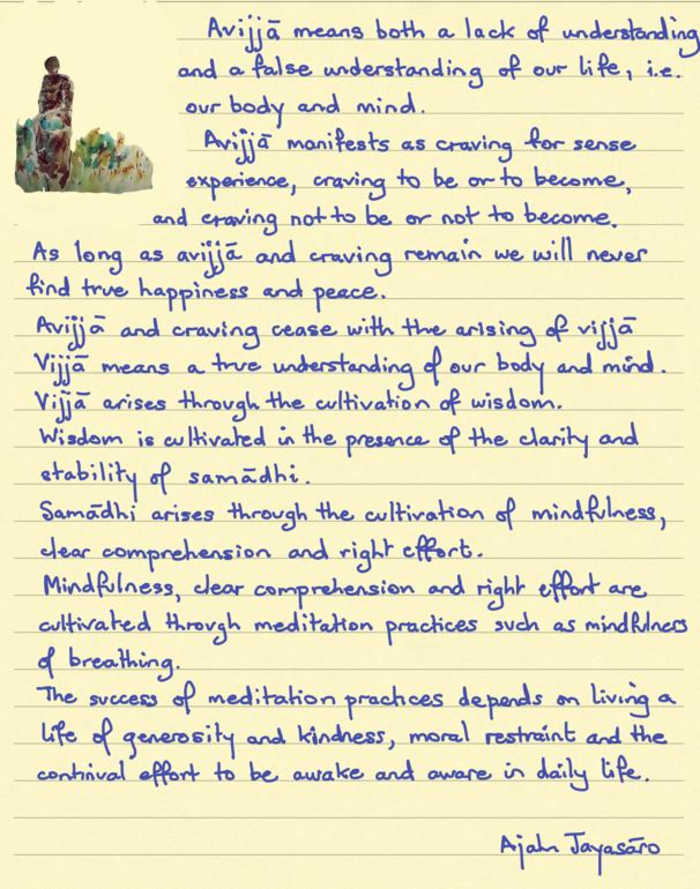 Avijjā means both a lack of understanding
and a false understanding of our life, i.e.
our body and mind.
Avijjā manifests as craving for sense
experience, craving to be or to become,
and craving not to be or not to become.
As long as avijjā and craving remain we will never
find true happiness and peace.
Avijjā and craving cease with the arising of vijjā
Vijjā means a true understanding of our body and mind.
Vijjā arises through the cultivation of wisdom.
Wisdom is cultivated in the presence of the clarity and
stability of samādhi.
Samādhi arises through the cultivation of mindfulness,
clear comprehension and right effort.
Mindfulness, clear comprehension and right effort are
cultivated through meditation practices such as mindfulness
of breathing.
The success of meditation practices depends on living a
life of generosity and kindness, moral restraint and the
continual effort to be awake and aware in daily life.
Ajahn Jayasāro